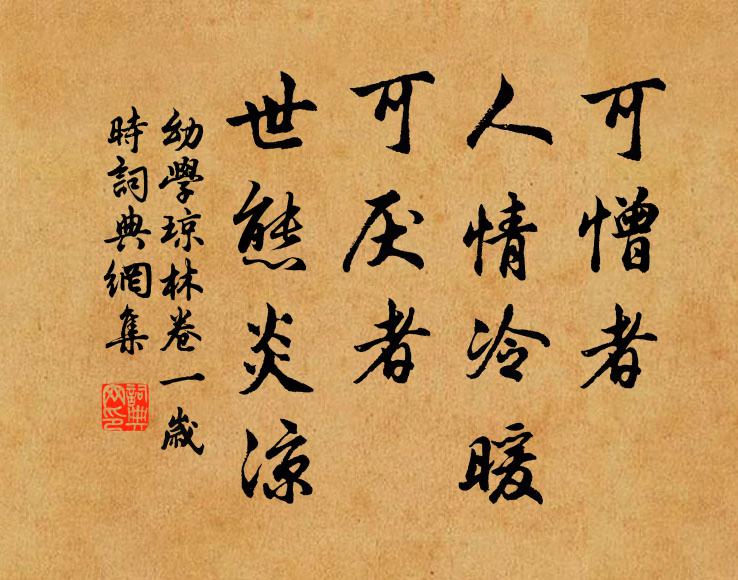 可憎者
人情冷暖
可厌者
世態炎涼
幼學琼林卷一歲
時詞典網集
詞典
网印